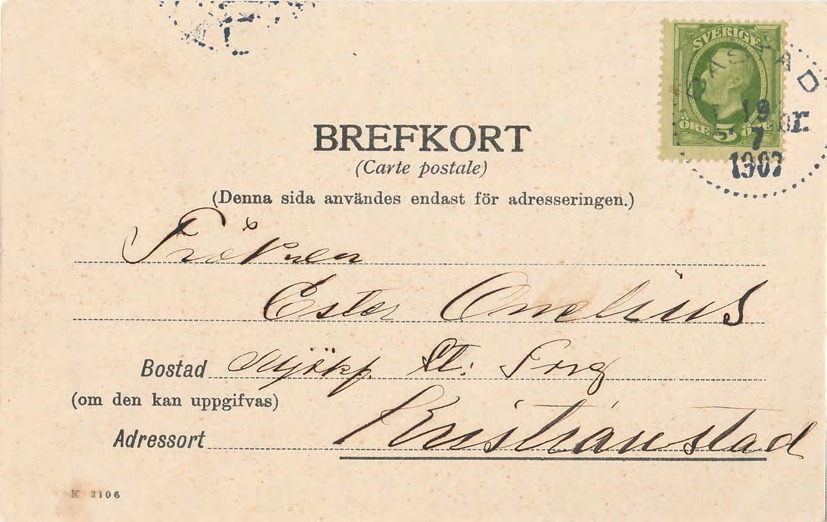 SVERIGE
ÖRE 5 ÖRE
BÅSTAD
19
7
1902
BREFKORT
(Carte postale)
(Denna sida användes endast för adresseringen.)
Fröken
Ester Omelius
Bostad Lt: Torg
(om den kan uppgifvas)
Adressort Kristianstad
K 2106